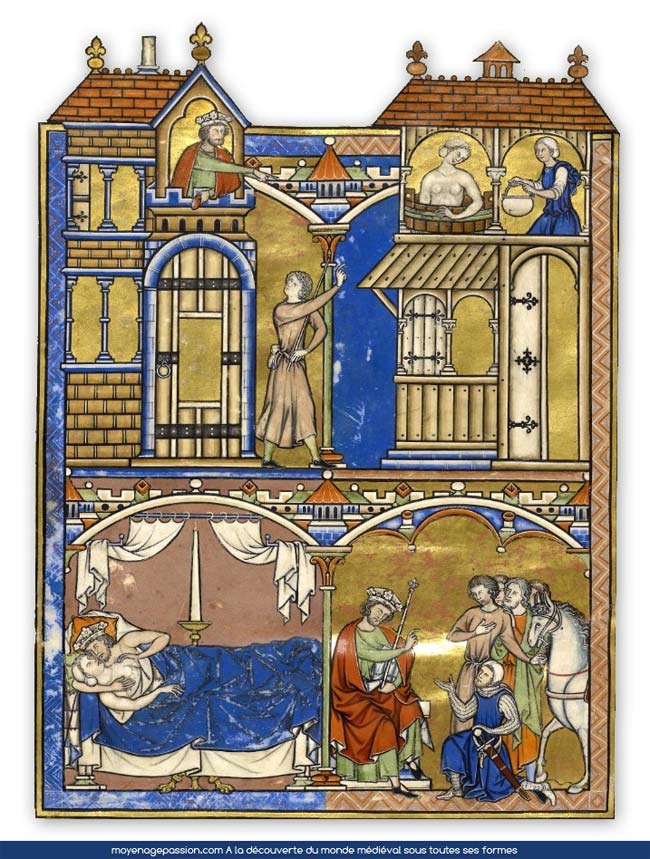 moyenagepassion.com A la découverte du monde médiéval sous toutes ses formes